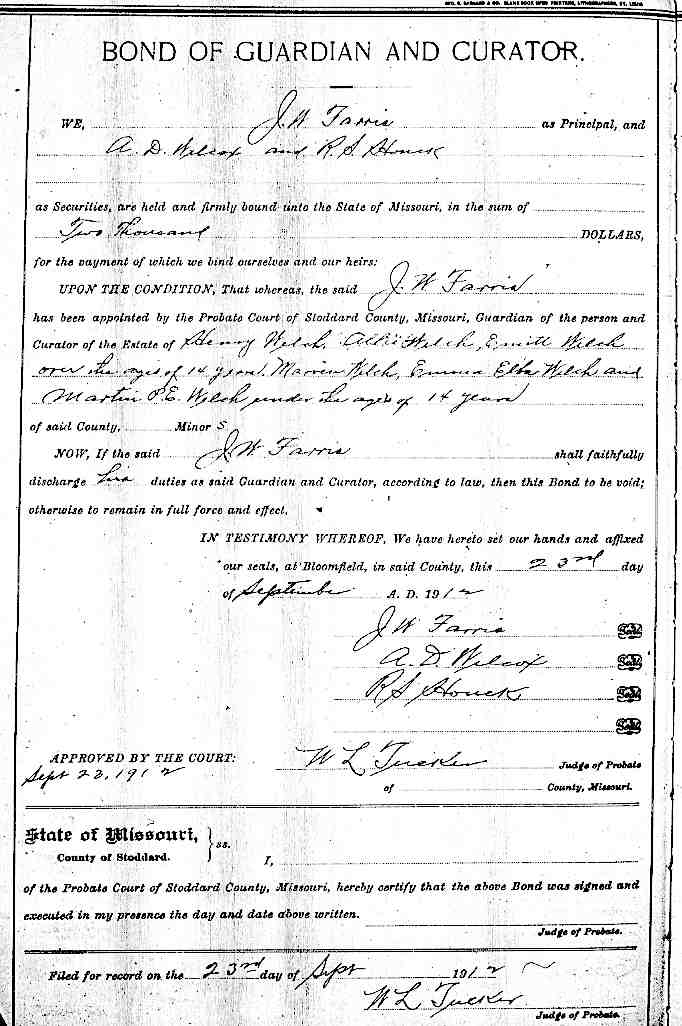 BOND OF GUARDIAN AND CURATOR.
WE, J. W Farris as Principal, and
A. D. Wilcox and R. S Houck
as Securities, are held and firmly bound unto the State of Missouri, in the sum of
Two Thousand DOLLARS,
for the payment of which we bind ourselves and our heirs:
UPON THE CONDITION, That whereas, the said J. W Farris
has been appointed by the Probate Court of Stoddard County, Missouri, Guardian of the person and
Curator of the Estate of Henry Welch, Allie Welch, Emitt Welch
over the ages of 14 years, Welch, Emma Welch and
Martin P. E. Welch under the ages of 14 years
of said County, Minor s
NOW, If the said J W Farris shall faithfully
discharge his duties as said Guardian and Curator, according to law, then this Bond to be void;
otherwise to remain in full force and effect.
IN TESTIMONY WHEREOF, We have hereto set our hands and affixed
our seals, at Bloomfield, in said County, this 23rd day
of September A. D. 1912
J W Farris Seal
A. D. Wilcox Seal
R S Houck Seal
Seal
APPROVED BY THE COURT: W L Tucker Judge of Probate
Sept 23, 1912
of County, Missouri.
State of Missouri, } ss.
County of Stoddard.
I,
of the Probate Court of Stoddard County, Missouri, hereby certify that the above Bond was signed and
executed in my presence the day and date above written.
Judge of Probate.
Filed for record on the 23rd day of Sept 1912
W L Tucker
Judge of Probate.